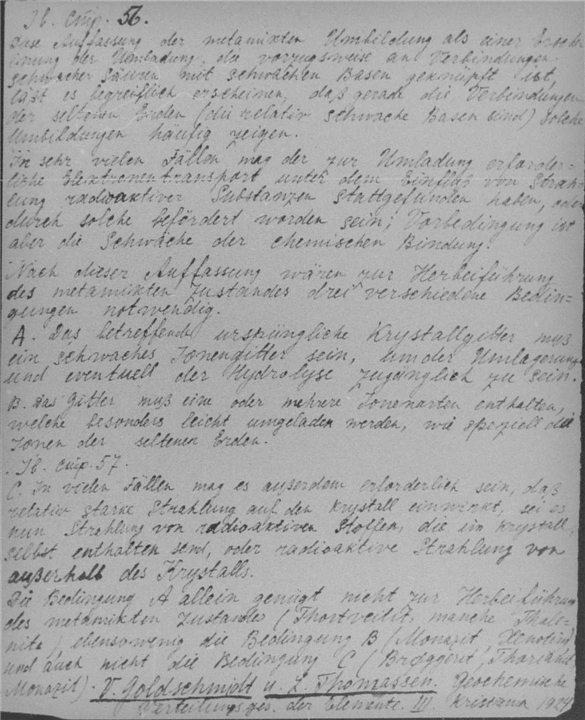 Ib. стр. 56.
Diese Auffassung der metamikten Umbildung als einer Erschei-
nung der Umladung, die vorzugsweise an Verbindungen
schwacher Säuren mit schwachen Basen geknüpft ist,
läßt es begreiflich erscheinen, daß gerade die Verbindungen
der seltenen Erden (die relativ schwache Basen sind) solche
Umbildungen häufig zeigen.
In sehr vielen Fällen mag der zur Umladung erforder-
liche Elektronentransport unter dem Einfluß von Strah-
lung radioaktiver Substanzen stattgefunden haben, oder
durch solche befördert worden sein; Vorbedingung ist
aber die Schwäche der chemischen Bindung.
Nach dieser Auffassung wären zur Herbeiführung
des metamikten Zustandes drei verschiedene Bedin-
gungen notwendig.
A. Das betreffende ursprüngliche Krystallgitter muß
ein schwaches Ionengitter sein, um der Umlagerung
und eventuell der Hydrolyse zugänglich zu sein.
B. Das Gitter muß eine oder mehrere Ionenarten enthalten,
welche besonders leicht umgeladen werden, wie speziell die
Ionen der seltenen Erden.
Ib. стр. 57.
C. In vielen Fällen mag es außerdem erforderlich sein, daß
relativ starke Strahlung auf den Krystall einwirkt, sei es
nun Strahlung von radioaktiven Stoffen, die im Krystall
selbst enthalten sind, oder radioaktive Strahlung von
außerhalb des Krystalls.
Die Bedingung A allein genügt nicht zur Herbeiführung
des metamikten Zustandes (Thortveitit, manche Thale-
nite) ebensowenig die Bedingung B (Monazit, Xenotim)
und auch nicht die Bedingung C (Bröggerit, Thorianit
Monazit). V. Goldschmidt u. L. Thomassen. Geochemische
Verteilungsges. der Elemente. III. Kristiania 1924